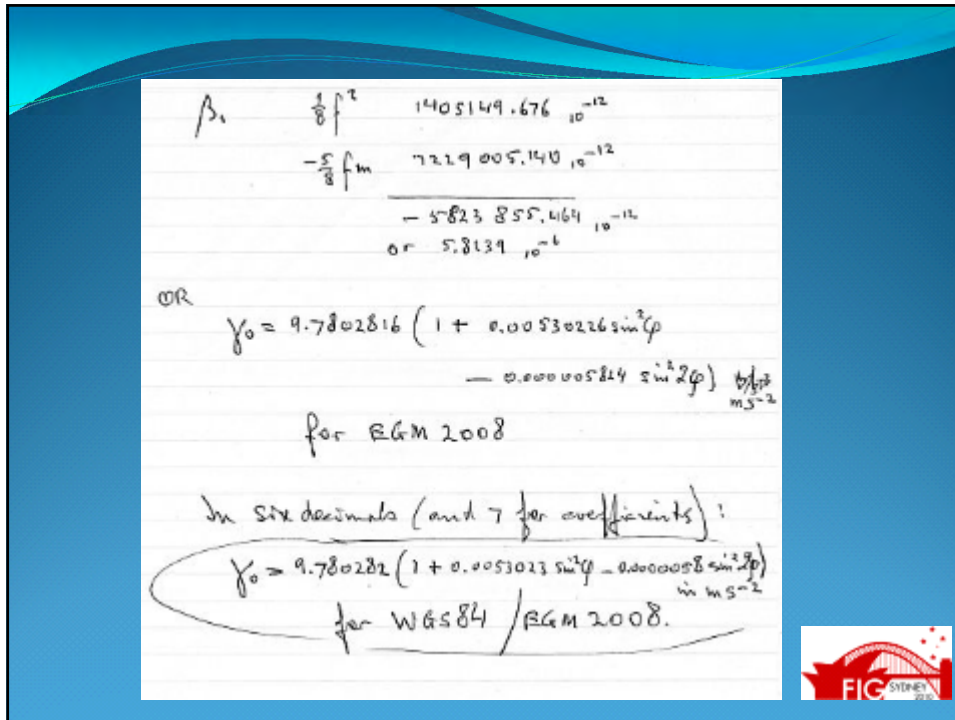 β₁ ⅛f² 1405149.676 ₁₀⁻¹²
-⅝fm 7229005.140 ₁₀⁻¹²
- 5823 855.464 ₁₀⁻¹²
or 5.8239 ₁₀⁻⁶
OR
γ₀ = 9.7802816 ( 1 + 0.00530226 sin²φ
- 0.000005824 sin²2φ)
ms⁻²
for EGM 2008
In six decimals (and 7 for coefficients) :
γ₀ = 9.780282 ( 1 + 0.0053023 sin²φ - 0.0000058 sin²2φ)
in ms⁻²
for WGS84 / EGM 2008.
FIG SYDNEY
2010